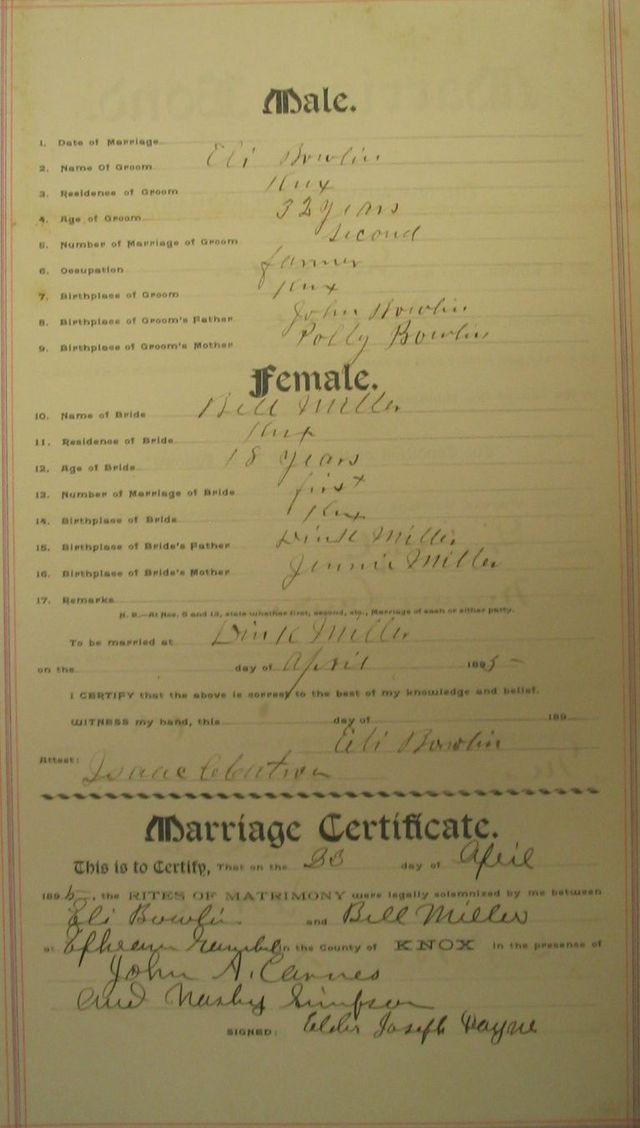 Male.
1. Date of Marriage
2. Name Of Groom Eli Bowlin
3. Residence of Groom Knx
4. Age of Groom 32 years
5. Number of Marriage of Groom second
6. Occupation farmer
7. Birthplace of Groom Knx
8. Birthplace of Groom's Father John Bowlin
9. Birthplace of Groom's Mother Polly Bowlin
Female.
10. Name of Bride Bell Miller
11. Residence of Bride Knx
12. Age of Bride 18 years
13. Number of Marriage of Bride first
14. Birthplace of Bride Knx
15. Birthplace of Bride's Father Dink Miller
16. Birthplace of Bride's Mother Jennie Miller
17. Remarks
N. B.—At Nos. 5 and 13, state whether first, second, etc., Marriage of each or either party.
To be married at Dink Miller
on the day of April 1895
I CERTIFY that the above is correct to the best of my knowledge and belief.
WITNESS my hand, this day of 189
Eli Bowlin
Attest: Isaac
Marriage Certificate.
This is to Certify, That on the 23 day of April
1895, the RITES OF MATRIMONY were legally solemnized by me between
Eli Bowlin and Bell Miller
at Epheam in the County of KNOX in the presence of
John A. Carnes
and Nasby Simpson
SIGNED: Elder Joseph Payne